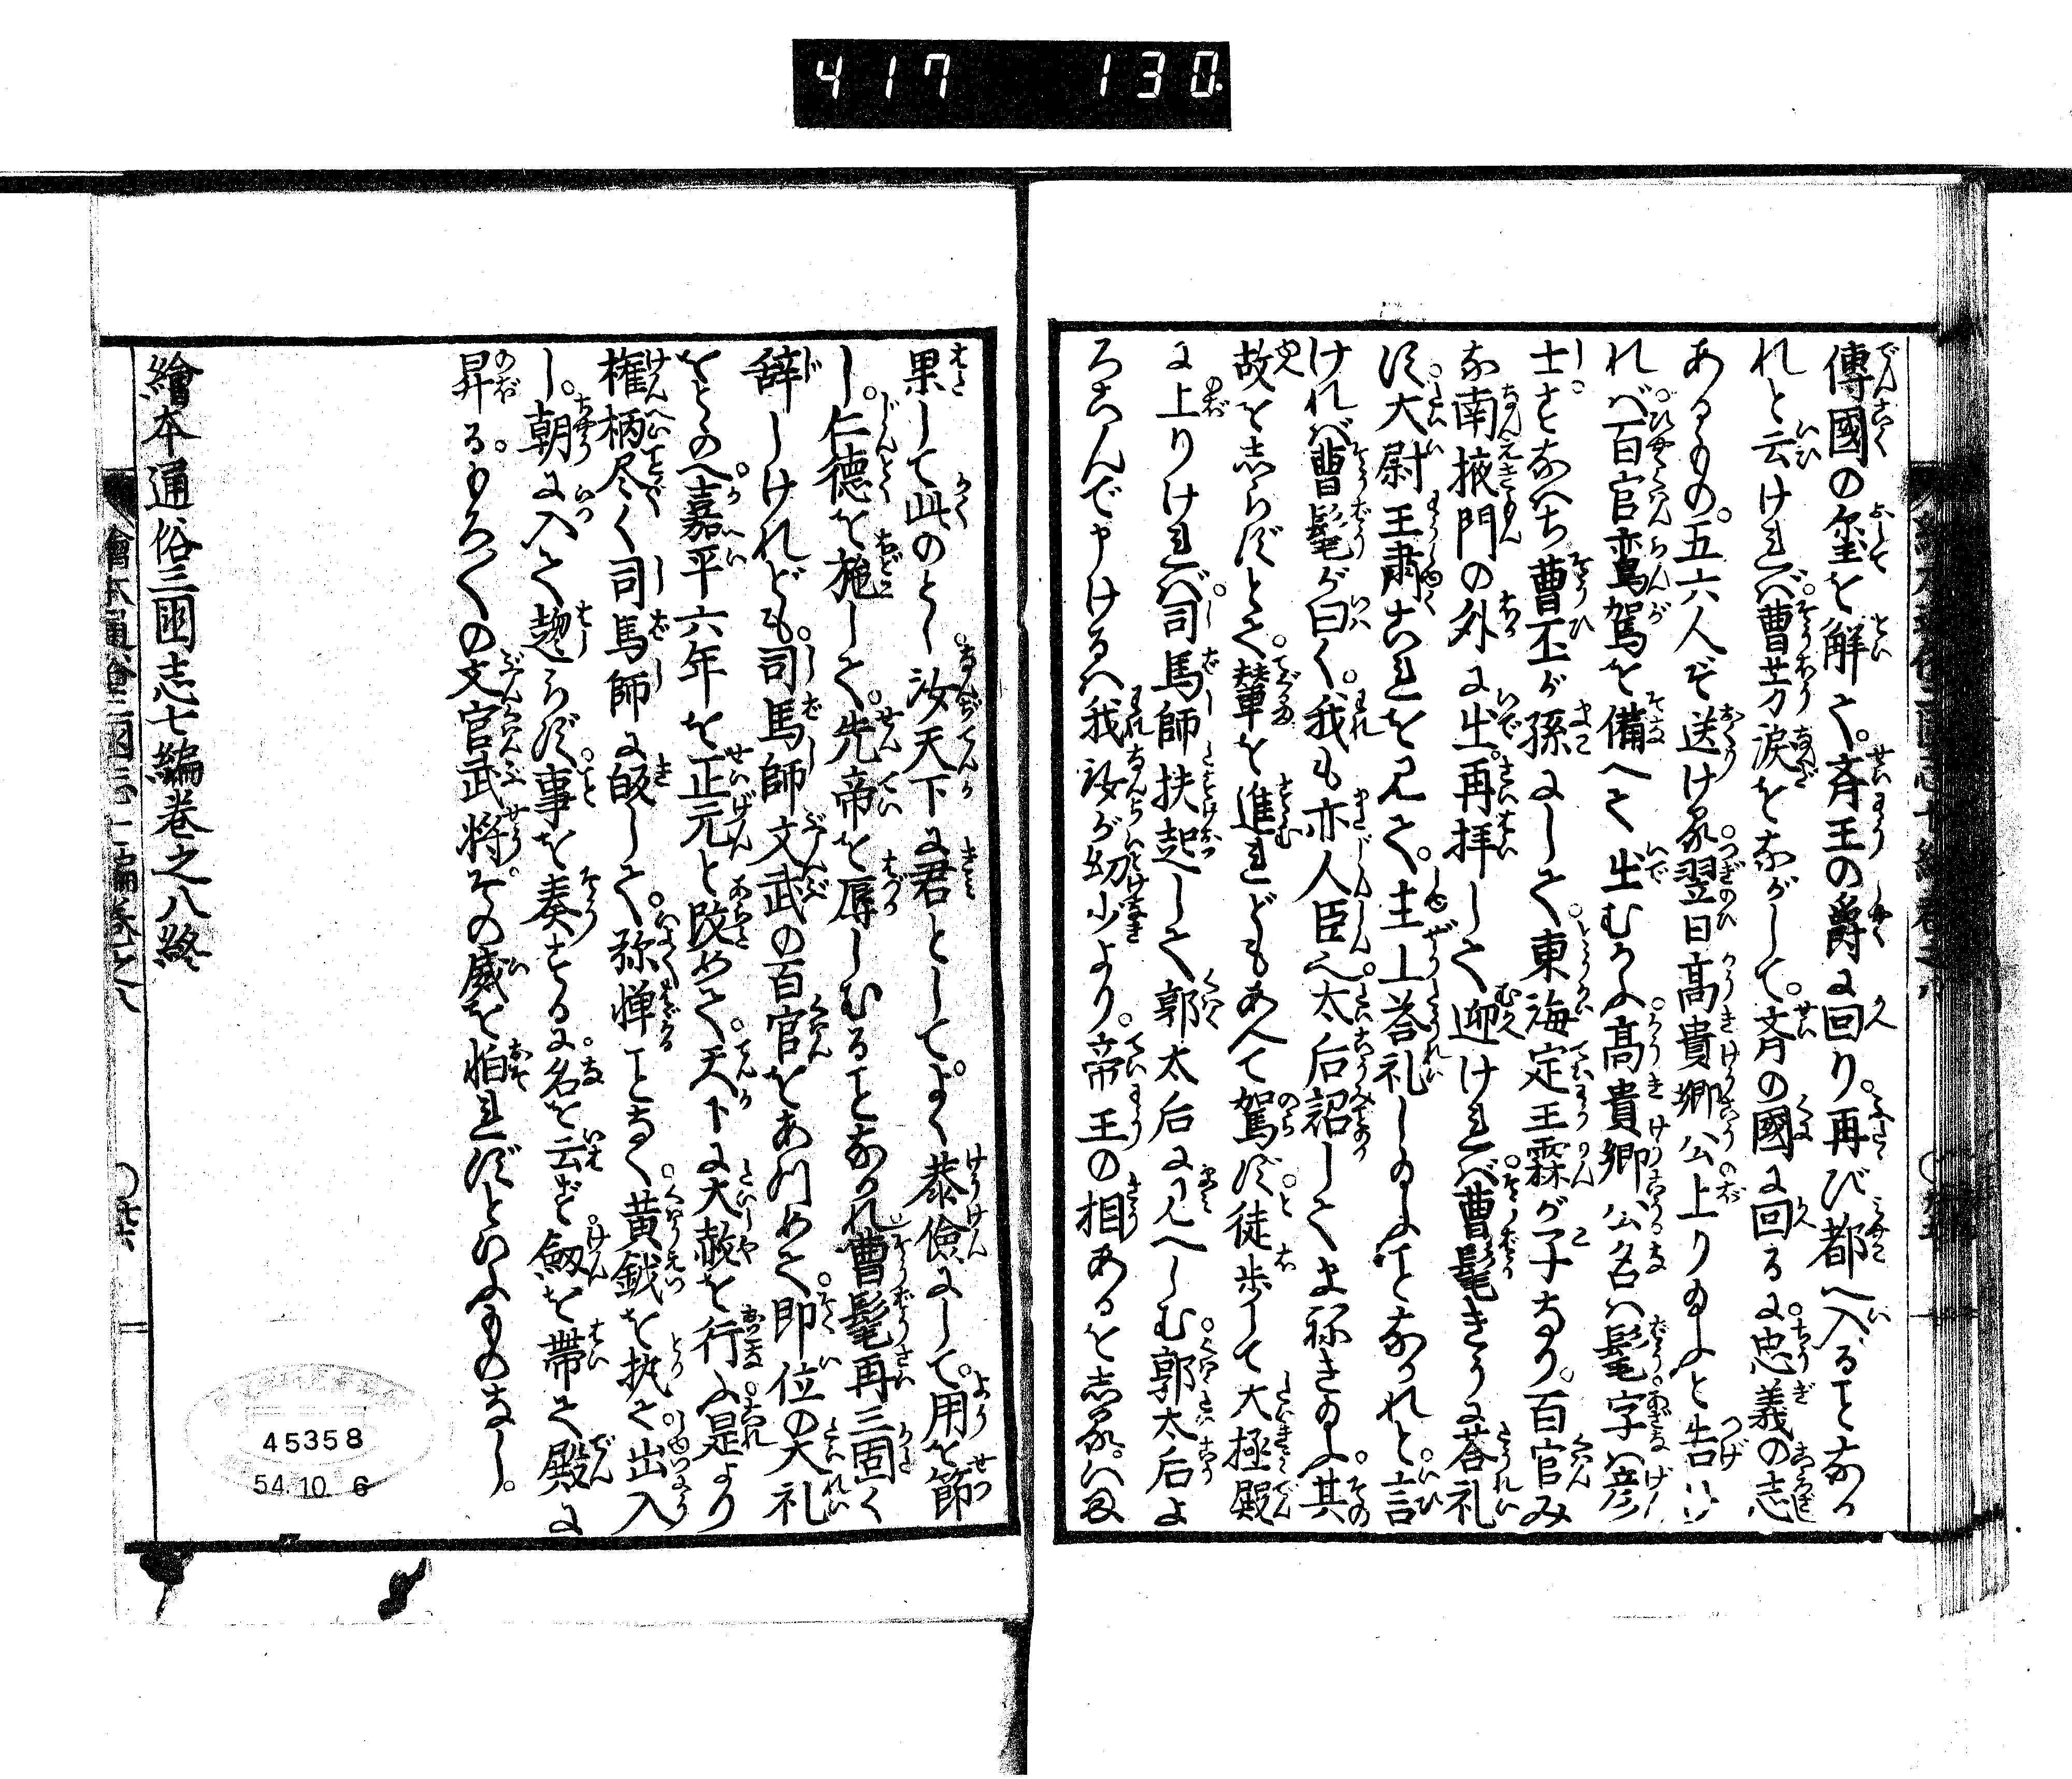 417 130
傳國の璽を解て。斉王の爵に回り。再び都へ入ることなか
れと云ければ。曹芳涙をながして。斉の國に回るに。忠義の志
あるもの。五六人ぞ送ける。翌日髙貴郷公上り給ふと告け
れば。百官鸞駕を備へて出むかふ。髙貴郷公名は髦字は彦
士。すなはち曹丕が孫にして。東海定王霖が子なり。百官み
な南掖門の外に出。再拝して迎ければ。曹髦きうに荅礼
す。大尉王肅これを見て。主上荅礼し給ふことなかれと。言
ければ。曹髦が曰く。我も亦人臣。太后詔してまねき給ふ。其
故をしらずとて。輦を進れどもあへて駕ず。徒歩して大極殿
に上りければ。司馬師扶起して郭太后に見へしむ。郭太后よ
ろこんで申けるは我汝が幼少より。帝王の相あるを志る。いま
果して此のとし。汝天下に君として。よく恭儉にして。用を節
し。仁徳を施して。先帝を辱しむることなかれ。曹髦再三固く
辞しけれども。司馬師文武の百官をあつめて。即位の大礼
をとゝのへ。嘉平六年を正元と改めて。天下に大赦を行ふ。是より
権柄尽く司馬師に皈して。弥憚ことなく。黄鉞を执て。出入
し。朝に入て趨らず。事を奏するに。名を云ず。劔を帯て殿に
昇る。もろ〳〵の文官武将。その威を怕れずといふものなし。
繪本通俗三國志七編巻之八終
45358
54.10 6